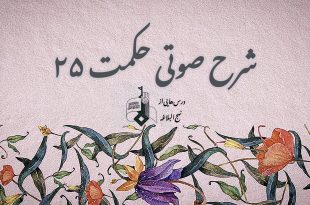 شرح صوتی حکمت ۲۵
درس هایی از
نهج البلاغه